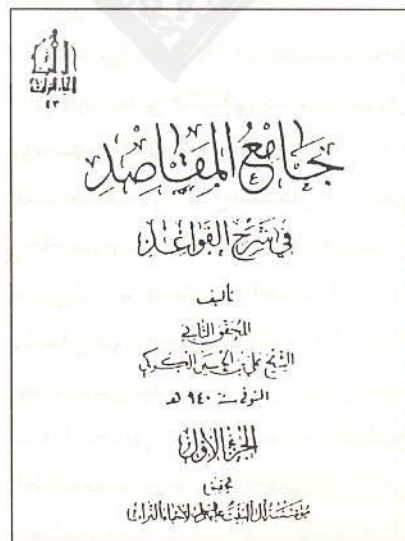 ٤٣
جامع المقاصد
في شرح القواعد
تأليف
المحقق الثاني
الشيخ علي بن الحسين الكركي
المتوفى سنة ٩٤٠ هـ
الجزء الأول
تحقيق
مؤسسة آل البيت عليهم السلام لإحياء التراث